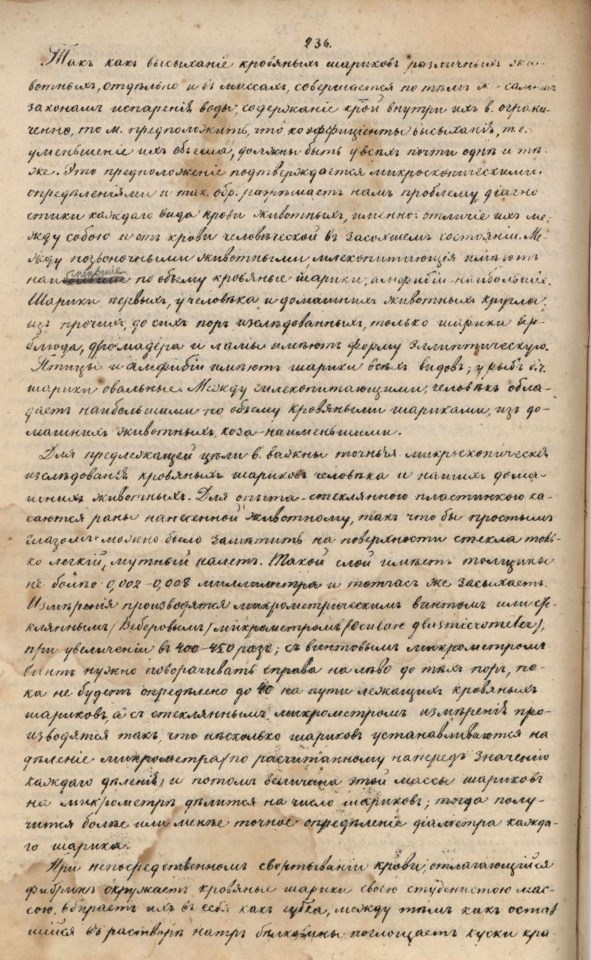 236.
Такъ какъ высыханіе кровяныхъ шариковъ различныхъ жи-
вотныхъ, отдѣльно и въ массахъ, совершается по тѣмъ ж. самымъ
законамъ испаренія воды, содержаніе крой внутри ихъ в. ограни-
ченно, то м. предположить, что коэффиціенты высыханія, т. е.
уменьшеніе ихъ объема, должны быть у всѣхъ почти одни и тѣ-
же. Это предположеніе подтверждается микроскопическими
опредѣленіями и так. обр. разъ намъ проблему діагно
стики каждаго вида крови животныхъ, именно: отличіе ихъ ме-
жду собою и отъ крови человѣческой въ засохшемъ состояніи. Ме-
жду позвоночными животными млекопитающія имѣютъ
наименьшіе по объему кровяные шарики, амфибіи – наибольшіе.
Шарики первыхъ, у человѣка и домашнихъ животныхъ круглы;
изъ прочихъ, до сихъ поръ изслѣдованныхъ, только шарики вер-
блюда, дромадера и ламы имѣютъ форму эллиптическую.
Птицы и амфибіи имѣютъ шарики всѣхъ видовъ; у рыбъ
шарики овальные. Между млекопитающими, человѣкъ обла-
даетъ наибольшими по объему кровяными шариками, изъ до-
машнихъ животныхъ, коза – наименьшими.
Для предлежащей цѣли в. важны точныя микроскопическія
изслѣдованія кровяныхъ шариковъ человѣка и нашихъ дома-
шнихъ животныхъ. Для опыта – стеклянною пластинкою ка-
саются раны нанесенной животному, такъ что бы простымъ
глазомъ можно было замѣтить на поверхности стекла толь-
ко легкій, мутный налетъ. Такой слой имѣетъ толщины
не болѣе 0,002 – 0,008 миллиметра и тотчасъ же засыхаетъ.
Измѣренія производятся микрометрическимъ винтомъ или сте-
кляннымъ /Веберовымъ/ микрометромъ /Oculare glasmicrometer/,
при увеличеніи въ 400–450 разъ; съ винтовымъ микрометромъ
винтъ нужно поворачивать справа на лѣво до тѣхъ поръ, по-
ка не будетъ опредѣлено до 40 на пути лежащихъ кровяныхъ
шариковъ, а съ стекляннымъ микрометромъ измѣренія про-
изводятся такъ, что нѣсколько шариковъ устанавливаются на
дѣленіе микрометра /по расчитанному напередъ значенію
каждаго дѣленія/ и потомъ величина этой массы шариковъ
на микрометрѣ дѣлится на число шариковъ; тогда полу-
чится болѣе или менѣе точное опредѣленіе діаметра каждо-
го шарика.
При непосредственномъ свертываніи крови, отлагающійся
фибринъ окружаетъ кровяные шарики своею студенистою мас-
сою, вбираетъ ихъ въ себя какъ губка, между тѣмъ какъ остав
шійся въ растворѣ натръ бѣлковины поглощаетъ куски кра-